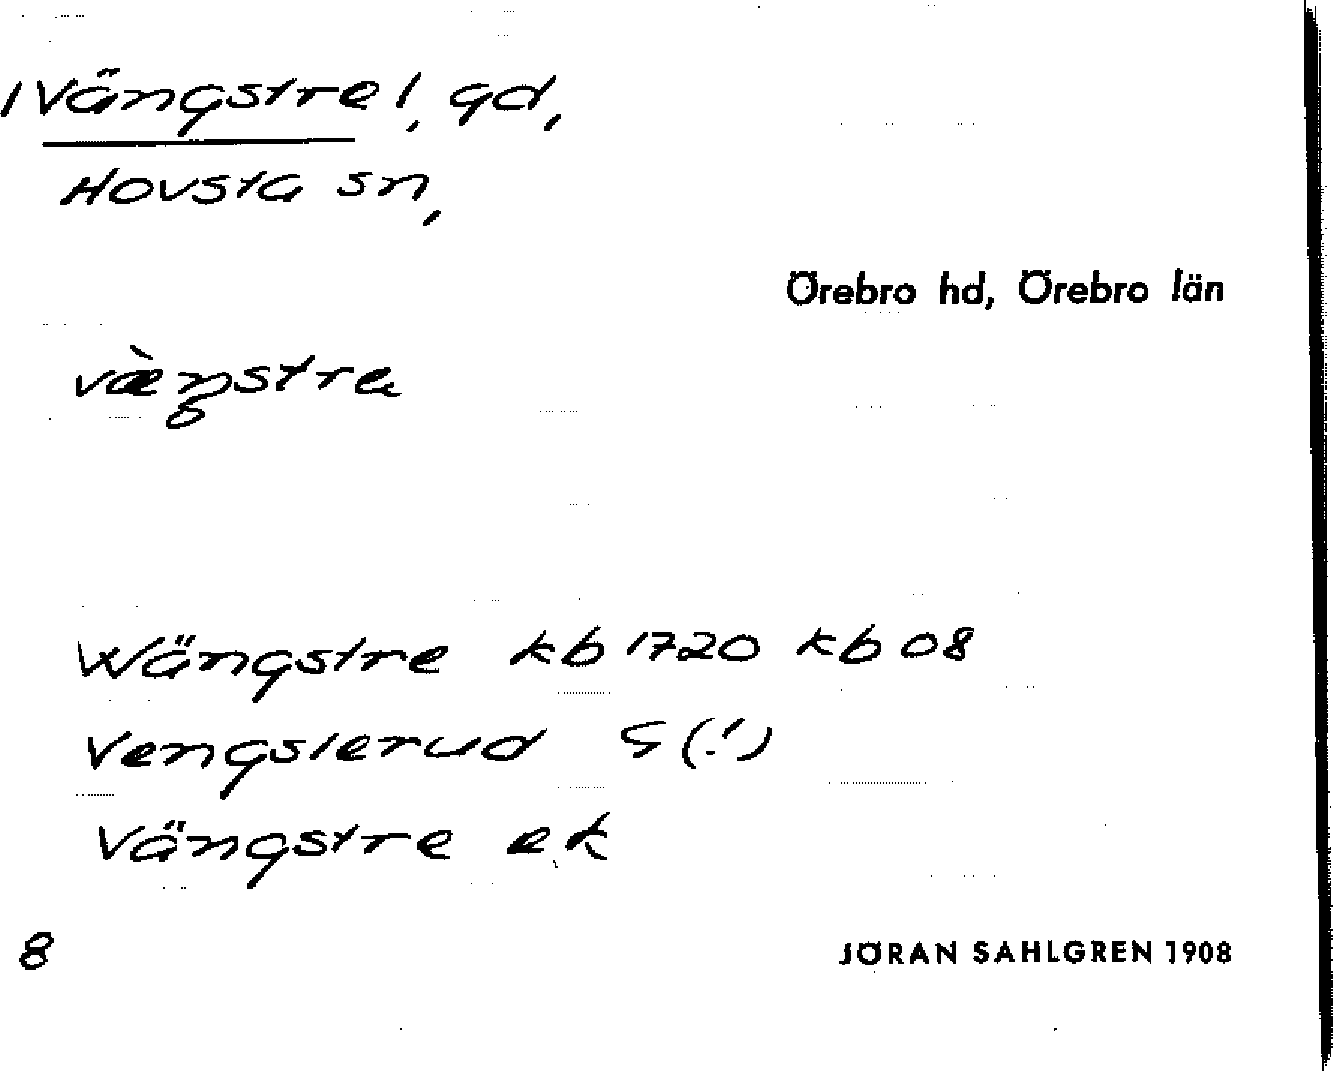 /Vängstre/, gd,
Hovsta sn,
Örebro hd, Örebro län
væ̀ŋstra
Wängstre kb 1720 kb 08
Vengslerud S (!)
Vängstre ek
8
JÖRAN SAHLGREN 1908